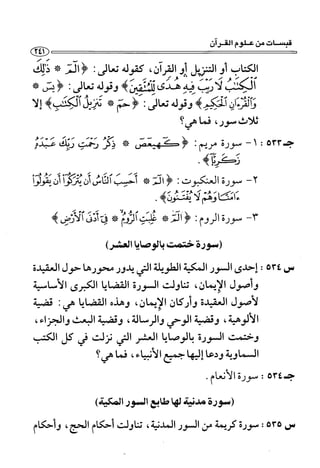 قبسات من علوم القرآن
٢٤١
الكتاب أو التنزيل أو القرآن، كقوله تعالى: ﴿الٓمٓ * ذَٰلِكَ
ٱلۡكِتَٰبُ لَا رَيۡبَۛ فِيهِۛ هُدٗى لِّلۡمُتَّقِينَ﴾ وقوله تعالى: ﴿يسٓ *
وَٱلۡقُرۡءَانِ ٱلۡحَكِيمِ﴾ وقوله تعالى: ﴿حمٓ * تَنزِيلُ ٱلۡكِتَٰبِ﴾ إلا
ثلاث سور، فما هي؟
جـ ٥٣٣: ١- سورة مريم: ﴿كٓهيعٓصٓ * ذِكۡرُ رَحۡمَتِ رَبِّكَ عَبۡدَهُۥ
زَكَرِيَّآ﴾.
٢- سورة العنكبوت: ﴿الٓمٓ * أَحَسِبَ ٱلنَّاسُ أَن يُتۡرَكُوٓاْ أَن يَقُولُوٓاْ
ءَامَنَّا وَهُمۡ لَا يُفۡتَنُونَ﴾.
٣- سورة الروم: ﴿الٓمٓ * غُلِبَتِ ٱلرُّومُ * فِيٓ أَدۡنَى ٱلۡأَرۡضِ﴾
(سورة ختمت بالوصايا العشر)
س ٥٣٤: إحدى السور المكية الطويلة التي يدور محورها حول العقيدة
وأصول الإيمان، تناولت السورة القضايا الكبرى الأساسية
لأصول العقيدة وأركان الإيمان، وهذه القضايا هي: قضية
الألوهية، وقضية الوحي والرسالة، وقضية البعث والجزاء،
وختمت السورة بالوصايا العشر التي نزلت في كل الكتب
السماوية ودعا إليها جميع الأنبياء، فما هي؟
جـ ٥٣٤: سورة الأنعام.
(سورة مدنية لها طابع السور المكية)
س ٥٣٥: سورة كريمة من السور المدنية، تناولت أحكام الحج، وأحكام